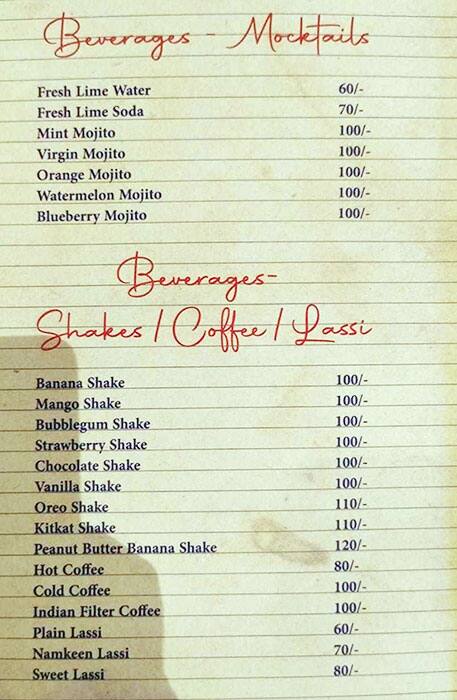 Beverages - Mocktails
Fresh Lime Water 60/-
Fresh Lime Soda 70/-
Mint Mojito 100/-
Virgin Mojito 100/-
Orange Mojito 100/-
Watermelon Mojito 100/-
Blueberry Mojito 100/-
Beverages-
Shakes / Coffee / Lassi
Banana Shake 100/-
Mango Shake 100/-
Bubblegum Shake 100/-
Strawberry Shake 100/-
Chocolate Shake 100/-
Vanilla Shake 100/-
Oreo Shake 110/-
Kitkat Shake 110/-
Peanut Butter Banana Shake 120/-
Hot Coffee 80/-
Cold Coffee 100/-
Indian Filter Coffee 100/-
Plain Lassi 60/-
Namkeen Lassi 70/-
Sweet Lassi 80/-